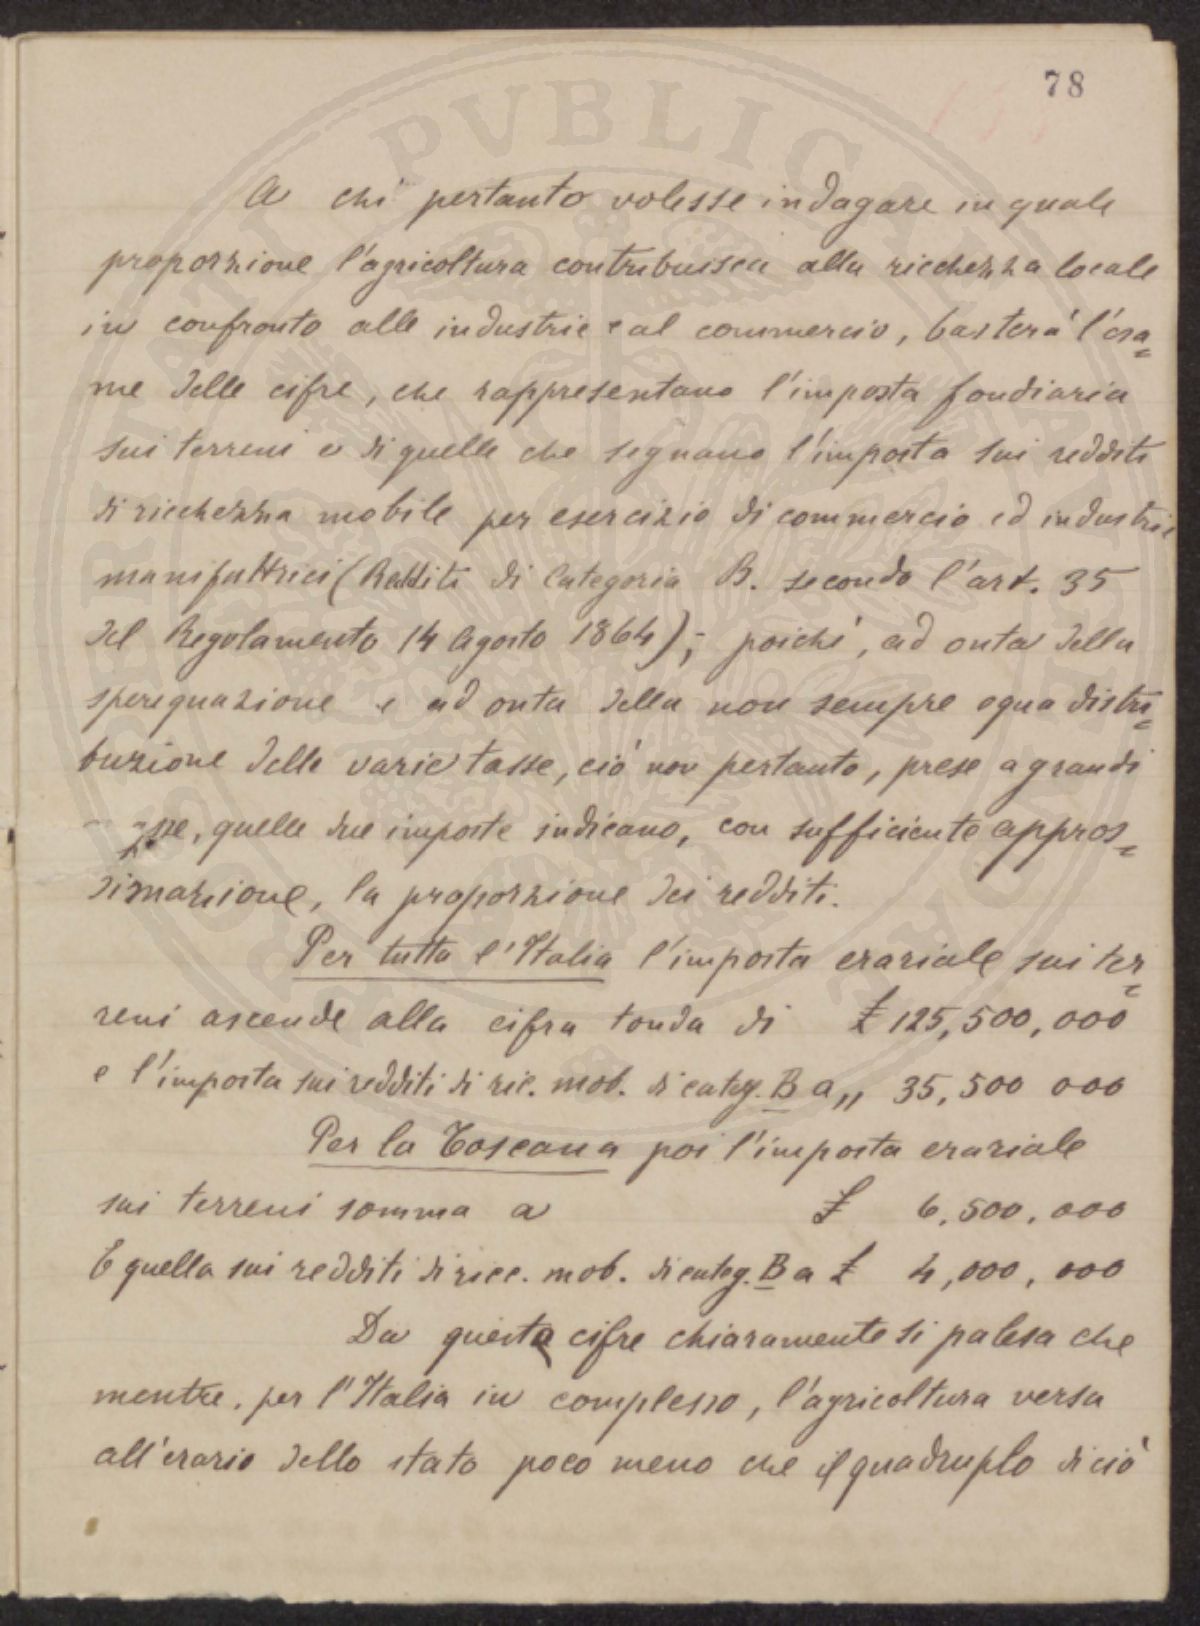 78
A chi pertanto volesse indagare in quale
proporzione l'agricoltura contribuisca alla ricchezza locale
in confronto alle industrie e al commercio, basterà l'esa=
me delle cifre, che rappresentano l'imposta fondiaria
sui terreni e di quelle che segnano l'imposta sui redditi
di ricchezza mobile per esercizio di commercio ed industrie
manifattrici (Redditi di Categoria B. secondo l'art. 35
del Regolamento 14 Agosto 1864); poichè, ad onta della
sperequazione e ad onta della non sempre equa distri=
buzione delle varie tasse, ciò non pertanto, prese a grandi
quelle due imposte indicano, con sufficiente appros=
simazione, la proporzione dei redditi.
Per tutta l'Italia l'imposta erariale sui ter=
reni ascende alla cifra tonda di £ 125,500,000
e l'imposta sui redditi di ric. mob. di categ. B a „ 35,500 000
Per la Toscana poi l'imposta erariale
sui terreni somma a £ 6,500,000
E quella sui redditi di ricc. mob. di categ. B a £ 4,000,000
Da queste cifre chiaramente si palesa che
mentre, per l'Italia in complesso, l'agricoltura versa
all'erario dello stato poco meno che il quadruplo di ciò